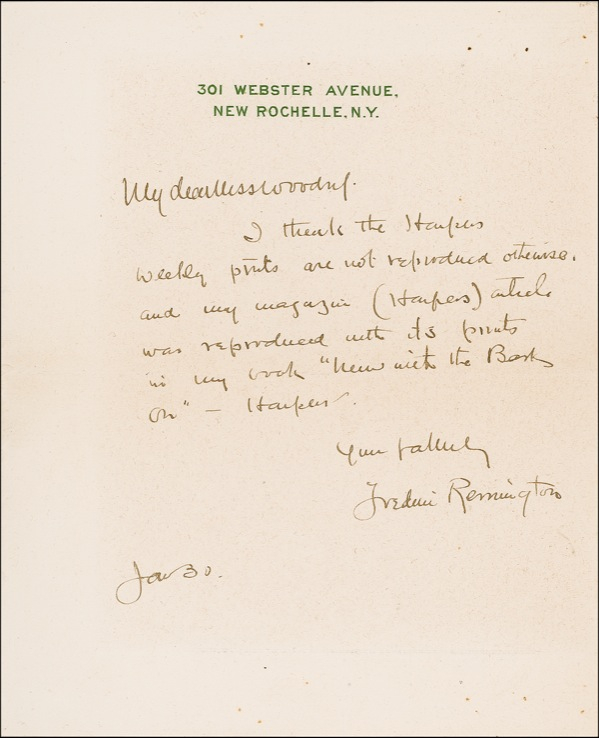 301 WEBSTER AVENUE,
NEW ROCHELLE, N.Y.
My dear Miss Woodruf.
I think the Harpers
Weekly prints are not reproduced otherwise.
and my magazine (Harpers) article
was reproduced with its prints
in my book "Men with the Bark
On" — Harpers.
Your faithfully
Frederic Remington
Jan 30.